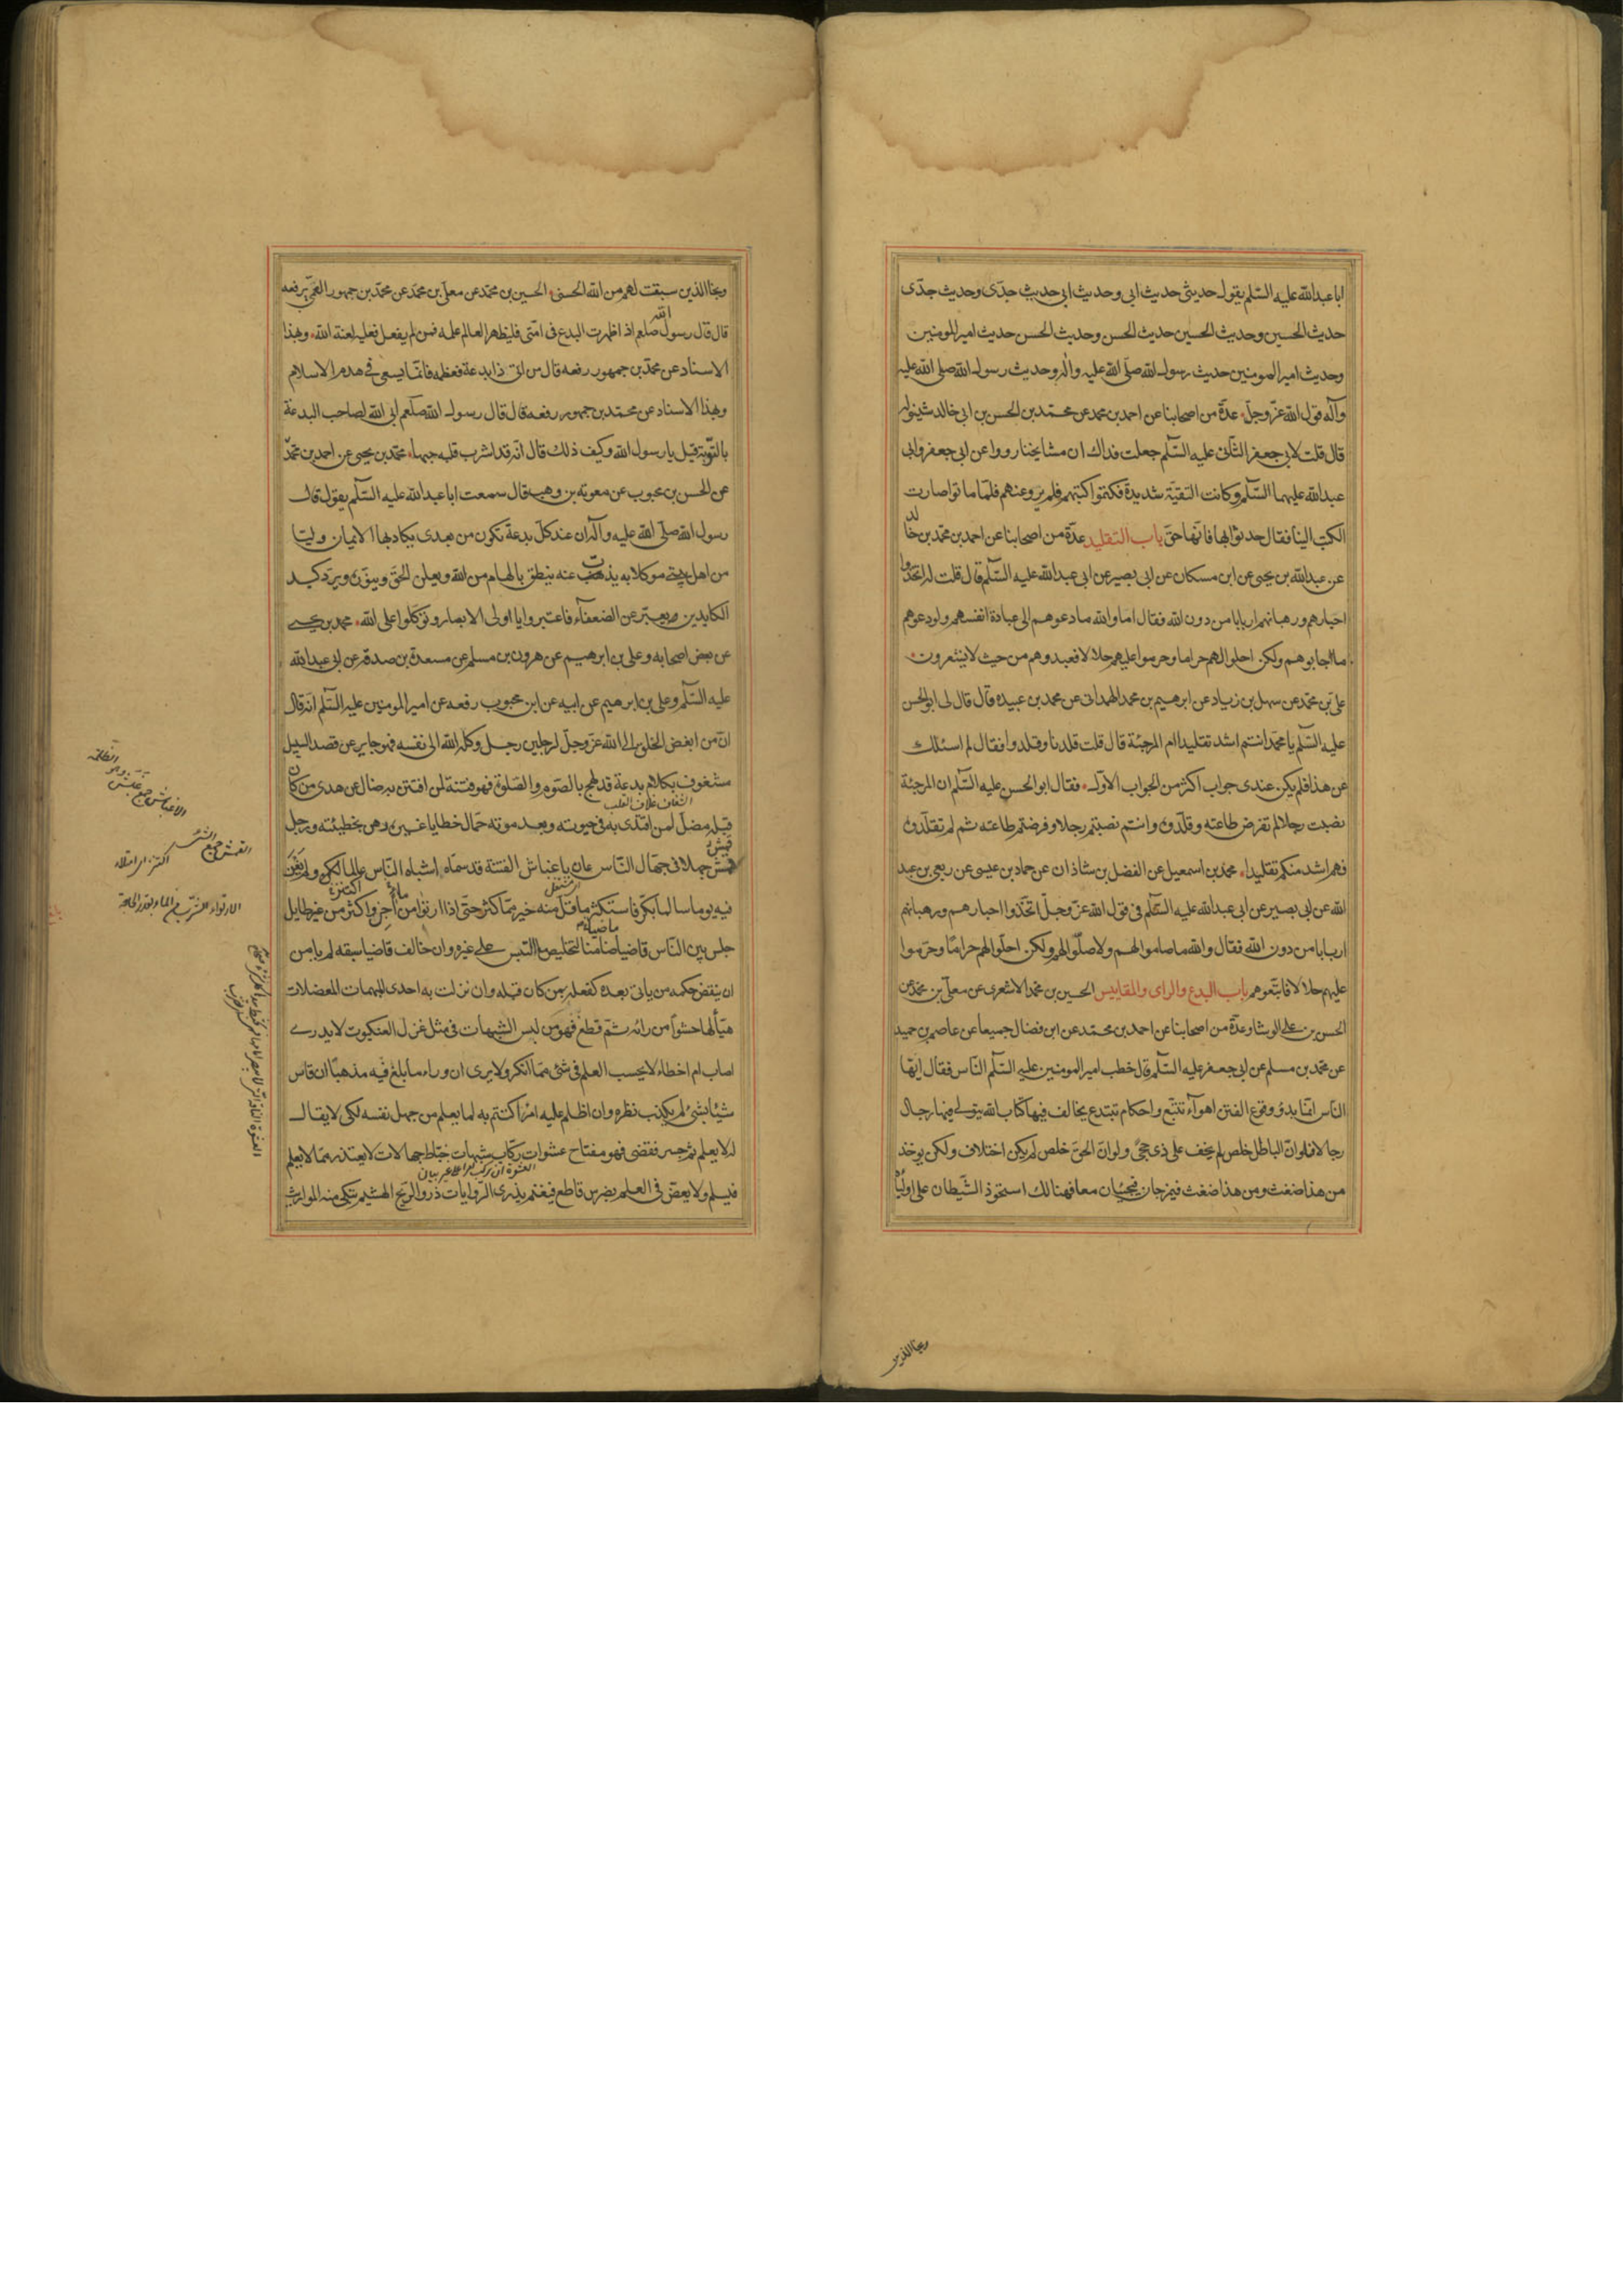 ابا عبد الله عليه السّلم يقول حديثى حديث ابى وحديث ابى حديث جدّى وحديث جدّى
حديث الحسين وحديث الحسين حديث الحسن وحديث الحسن حديث امير المومنين
وحديث امير المومنين حديث رسول الله صلّى الله عليه وآله وحديث رسول الله صلّى الله عليه
وآله قول الله عزّ وجلّ عدّة من اصحابنا عن احمد بن محمد عن محمّد بن الحسن بن ابى خالد شينوله
قال قلت لابى جعفر الثّانى عليه السّلم جعلت فداك ان مشايخنا رووا عن ابى جعفر وابى
عبد الله عليهما السّلم وكانت التقيّة شديدة فكتموا كتبهم فلم يرو عنهم فلمّا ماتوا صارت
الكتب الينا فقال حدثوا بها فانّها حق باب التقليد عدّة من اصحابنا عن احمد بن محمّد بن خالد
عن عبد الله بن يحيى عن ابن مسكان عن ابى بصير عن ابى عبد الله عليه السّلم قال قلت له اتخذوا
احبارهم ورهبانهم اربابا من دون الله فقال اما والله ما دعوهم الى عبادة انفسهم ولو دعوهم
ما اجابوهم ولكن احلوا لهم حراما وحرموا عليهم حلالا فعبدوهم من حيث لا يشعرون
على بن محمّد عن سهل بن زياد عن ابرهيم بن محمد الهمدانى عن محمد بن عبيده قال قال لى ابو الحسن
عليه السّلم يا محمّد انتم اشد تقليدا ام المرجئة قال قلت قلدنا وقلدوا فقال لم اسئلك
عن هذا فلم يكن عندى جواب اكثر من الجواب الاوّل فقال ابو الحسن عليه السّلم ان المرجئة
نصبت رجلا لم تفرض طاعته وقلّدوه وانتم نصبتم رجلا وفرضتم طاعته ثم لم تقلّدوه
فهم اشد منكم تقليدا محمّد بن اسمعيل عن الفضل بن شاذان عن حماد بن عيسى عن ربعى بن عبد
الله عن ابى بصير عن ابى عبد الله عليه السّلم فى قول الله عزّ وجلّ اتخّذوا احبارهم ورهبانهم
اربابا من دون الله فقال والله ما صاموا لهم ولا صلّوا لهم ولكن احلّوا لهم حراما وحرّموا
عليهم حلالا فاتبّعوهم باب البدع والراى والمقاييس الحسين بن محمّد الاشعرى عن معلّى بن محمّد عن
الحسن بن على الوشا وعدّة من اصحابنا عن احمد بن محمّد عن ابن فضال جميعا عن عاصم بن حميد
عن محمّد بن مسلم عن ابى جعفر عليه السّلم قال خطب امير المومنين عليه السّلم النّاس فقال ايّها
النّاس انمّا بدؤ وقوع الفتن اهوآء تتبّع واحكام تبتدع يخالف فيها كتاب الله يتولى فيها رجال
رجالا فلو انّ الباطل خلص لم يخف على ذى حجىً ولو انّ الحقّ خلص لم يكن اختلاف ولكن يوخذ
من هذا ضغث ومن هذا ضغث فيمزجان فيجيئان معا فهنالك استحوذ الشّيطان على اوليائه
ونجا الذين
ونجا الذين سبقت لهم من الله الحسنى الحسين بن محمّد عن معلّى بن محمّد عن محمّد بن جمهور العمّى يرفعه
قال قال رسول الله صلعم اذا ظهرت البدع فى امّتى فليظهر العالم علمه فمن لم يفعل فعليه لعنة الله وبهذا
الاسناد عن محمّد بن جمهور رفعه قال من اتى ذا بدعة فعظمه فانمّا يسعى فى هدم الاسلام
وبهذا الاسناد عن محمّد بن جمهور رفعه قال قال رسول الله صلّعم ابى الله لصاحب البدعة
بالتّوبة قيل يا رسول الله وكيف ذلك قال انّه قد اشرب قلبه حبها محمّد بن يحيى عن احمد بن محمّد
عن الحسن بن محبوب عن معوية بن وهب قال سمعت ابا عبد الله عليه السّلم يقول قال
رسول الله صلّى الله عليه وآله ان عند كلّ بدعة تكون من بعدى يكاد بها الايمان وليّا
من اهل بيتى موكلا به يذب عنه ينطق بالهام من الله ويعلن الحقّ وينوّره ويردّ كيد
الكايدين ويعبّر عن الضعفاء فاعتبروا يا اولى الابصار وتوكّلوا على الله محمد بن يحيى
عن بعض اصحابه وعلى بن ابرهيم عن هرون بن مسلم عن مسعدة بن صدقه عن ابى عبد الله
عليه السّلم وعلى بن ابرهيم عن ابيه عن ابن محبوب رفعه عن امير المومنين عليه السّلم انّه قال
انّ من ابغض الخلق الى الله عزّ وجلّ لرجلين رجل وكله الله الى نفسه فهو جاير عن قصد السبيل
مشغوف بكلام بدعة قد لهج بالصّوم والصّلوة فهو فتنة لمن افتتن به ضال عن هدى من كان
الشغاف غلاف القلب
قبله مضلّ لمن اقتدى به فى حيوته وبعد موته حمّال خطايا غيره رهن بخطيئته ورجل
قمش جهلا فى جهّال النّاس عان باغباش الفتنة قد سمّاه اشباه النّاس عالما ولم يغن
فيه يوما سالما بكّر فاستكثر ما قلّ منه خير ممّا كثر حتّى اذا ارتوى من آجن واكثر من غير طايل
جلس بين النّاس قاضيا ضامنا لتخليص ما التبس على غيره وان خالف قاضيا سبقه لم يامن
ان ينقض حكمه من ياتى بعده كفعله بمن كان قبله وان نزلت به احدى المبهمات المعضلات
هيّأ لها حشوا من رائه ثمّ قطع فهو من لبس الشبهات فى مثل غزل العنكبوت لا يدرى
اصاب ام اخطاء لا يحسب العلم فى شئ ممّا انكر ولا يرى ان وراء ما بلغ فيه مذهبا ان قاس
شيئا بشئ لم يكذب نظره وان اظلم عليه امر اكتتم به لما يعلم من جهل نفسه لكى لا يقال
له لا يعلم ثم جسر فقضى فهو مفتاح عشوات ركّاب شبهات خبّاط جهالات لا يعتذر ممّا لا يعلم
فيسلم ولا يعضّ فى العلم بضرس قاطع فيغنم يذرى الرّوايات ذرو الريّح الهشيم تبكى منه المواريث
الاغباش جمع غبش وهو الظلمة
القمش جمع الشئ
اكتنز اى امتلاء